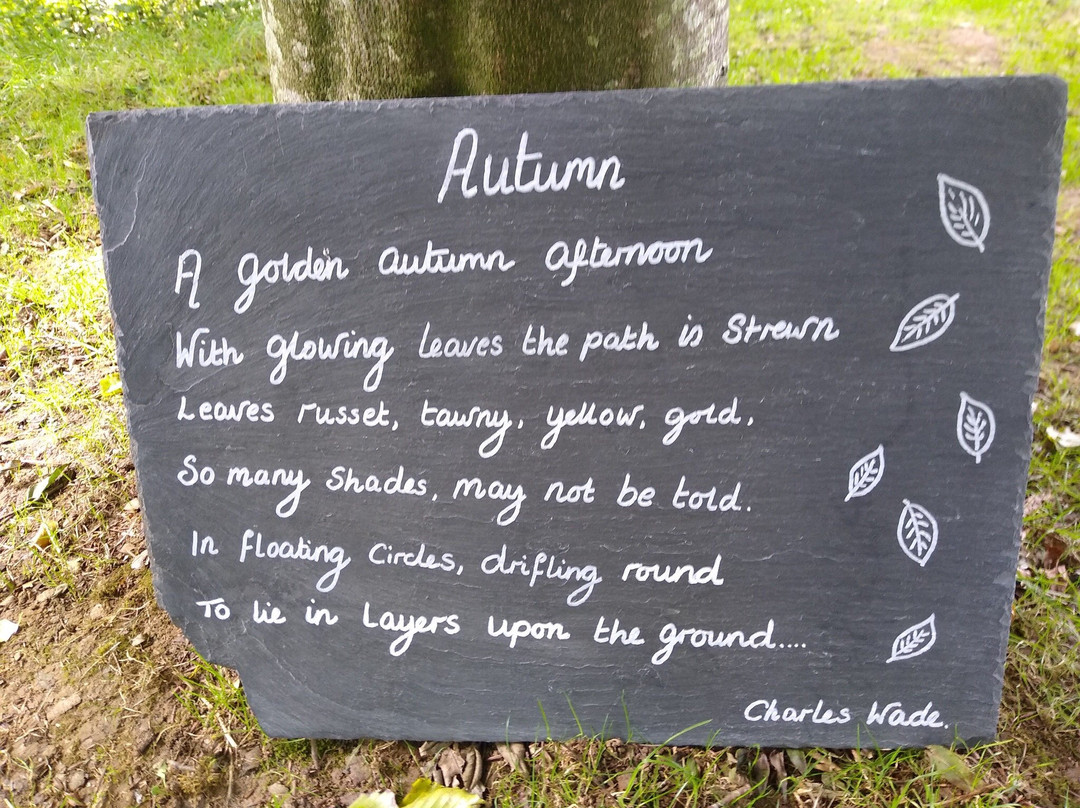 Autumn
A golden autumn afternoon
With glowing leaves the path is strewn
Leaves russet, tawny, yellow, gold,
So many shades, may not be told.
In floating circles, drifting round
To lie in layers upon the ground....
Charles Wade.